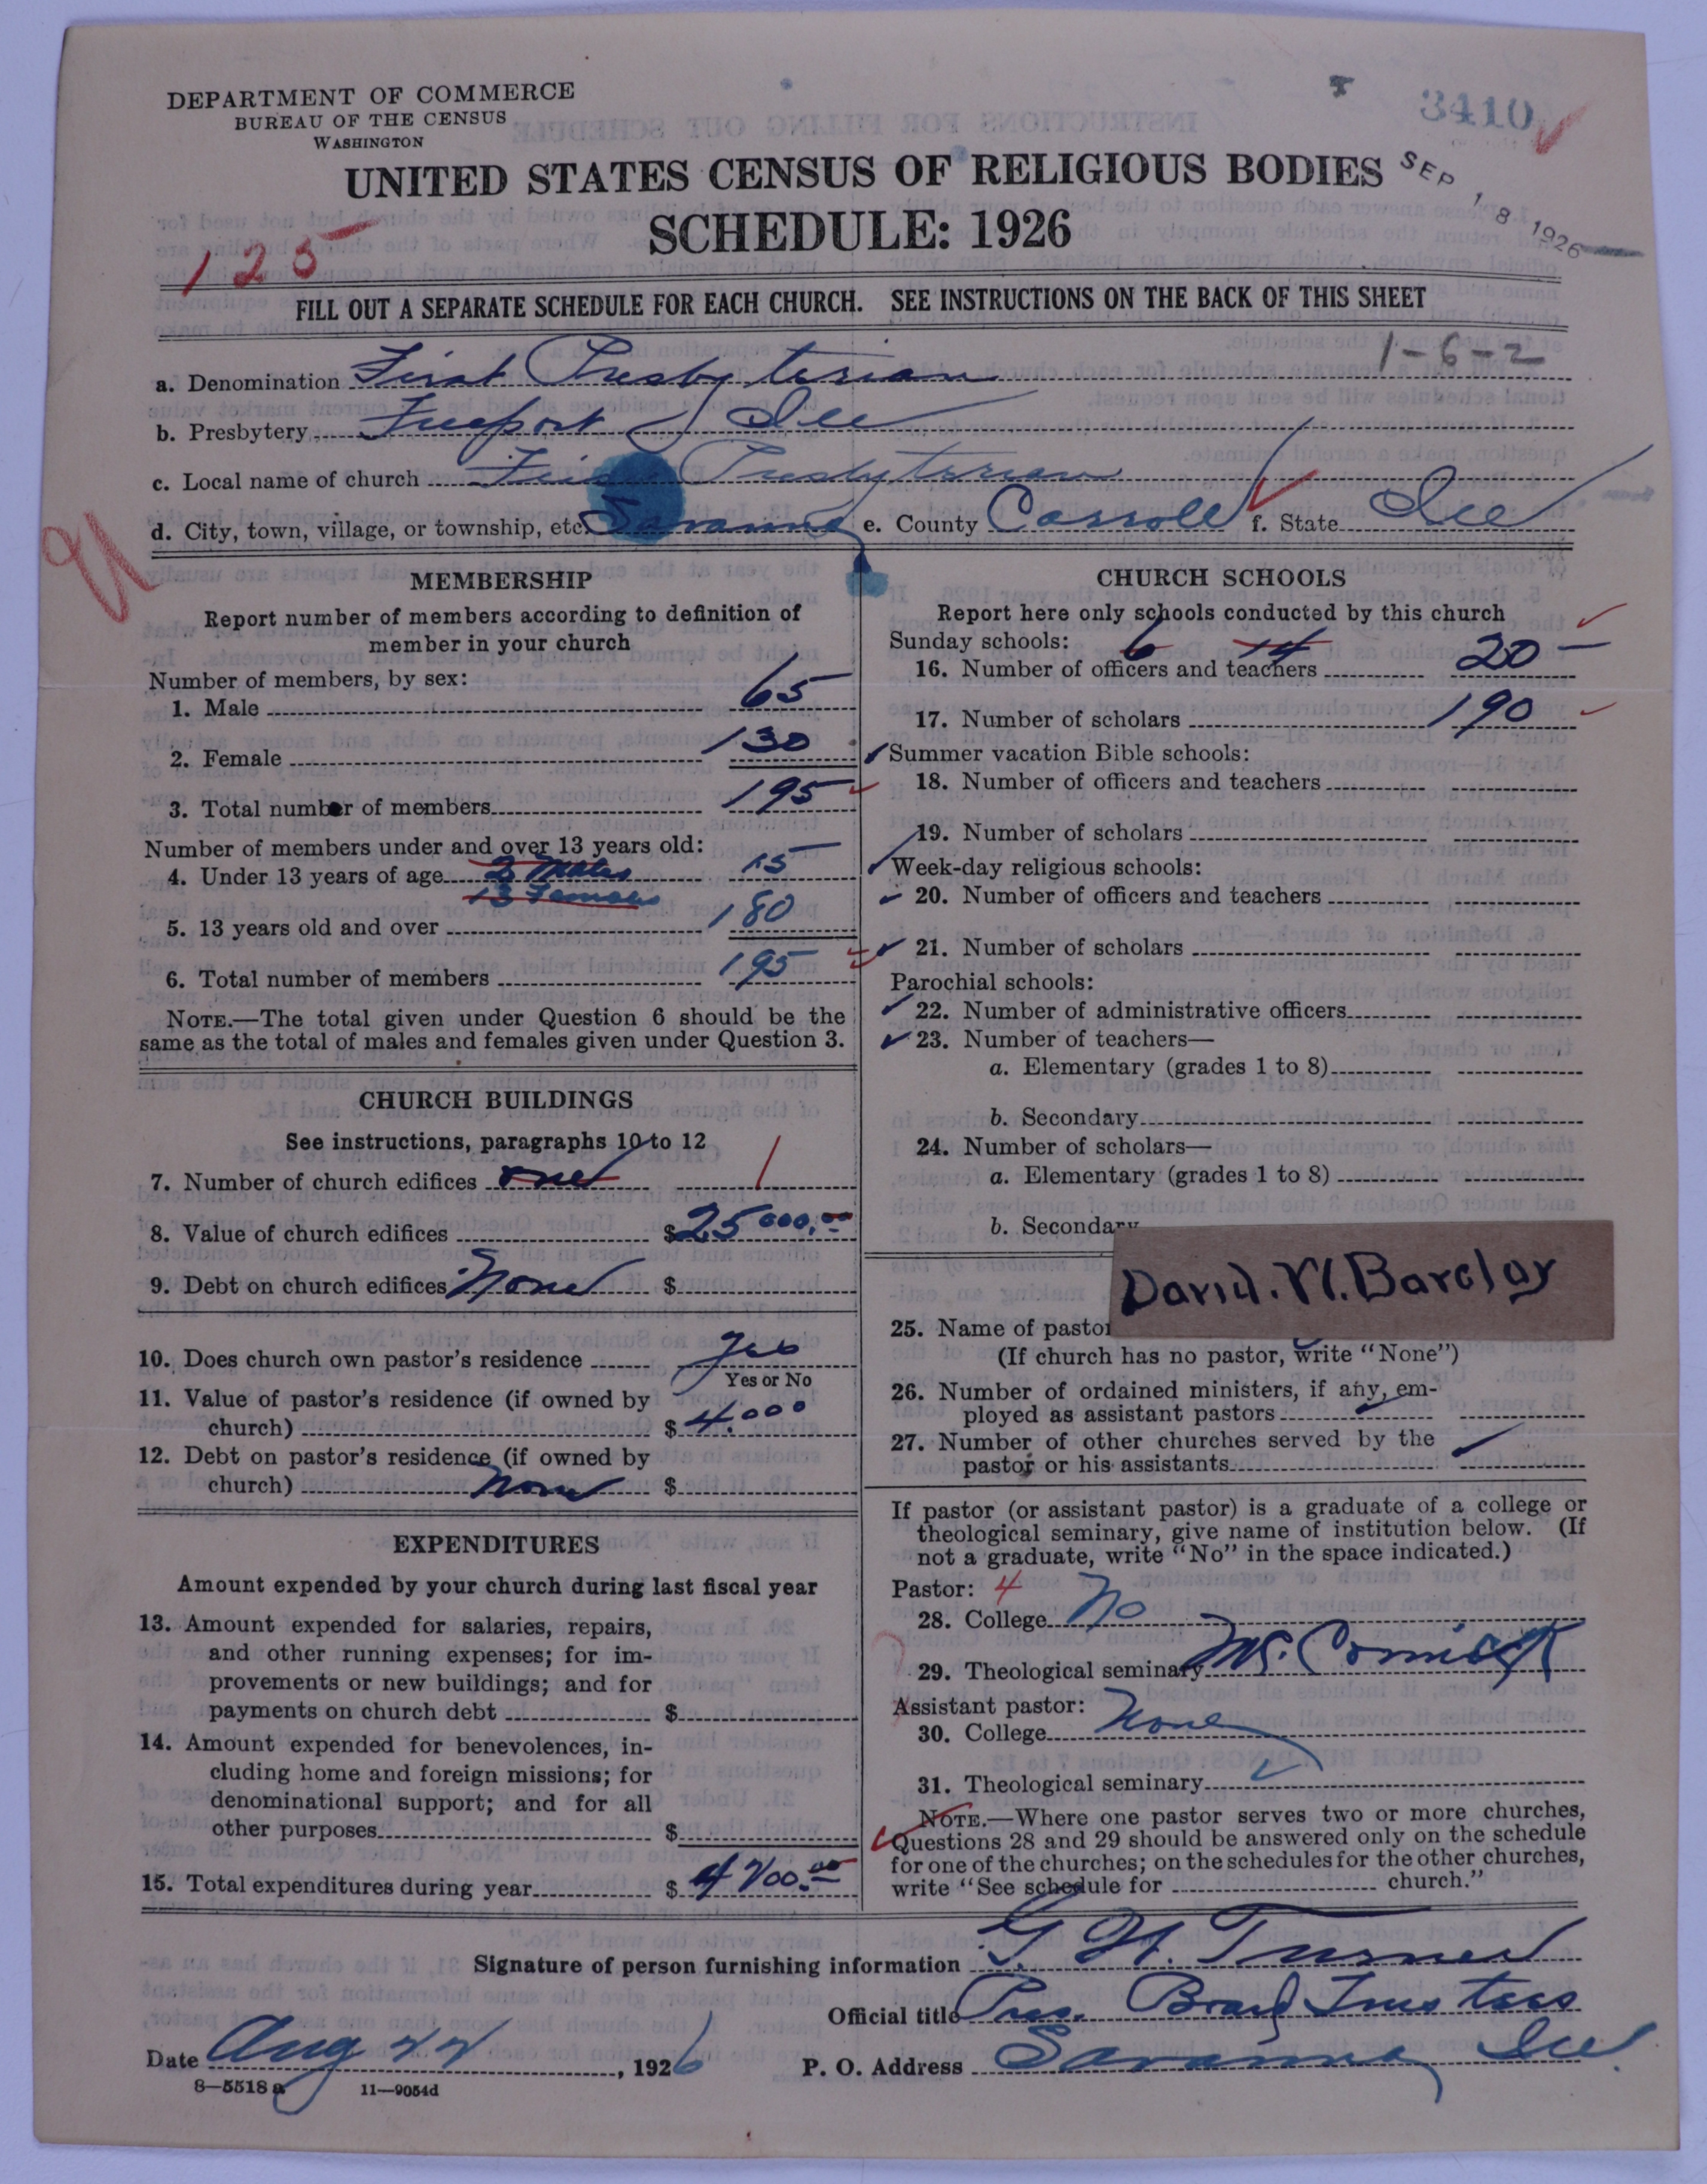 DEPARTMENT OF COMMERCE
BUREAU OF THE CENSUS
WASHINGTON
3410
UNITED STATES CENSUS OF RELIGIOUS BODIES
SEP 18 1926
SCHEDULE: 1926
125
FILL OUT A SEPARATE SCHEDULE FOR EACH CHURCH. SEE INSTRUCTIONS ON THE BACK OF THIS SHEET
1-6-2
a. Denomination First Presbyterian
b. Presbytery Freeport Ill
c. Local name of church First Presbyterian
d. City, town, village, or township, etc. Savanna e. County Carroll f. State Ill
MEMBERSHIP
Report number of members according to definition of
member in your church
Number of members, by sex:
1. Male 65
2. Female 130
3. Total number of members 195
Number of members under and over 13 years old:
4. Under 13 years of age 2 Males 15
13 Females
5. 13 years old and over 180
6. Total number of members 195
NOTE.—The total given under Question 6 should be the
same as the total of males and females given under Question 3.
CHURCH BUILDINGS
See instructions, paragraphs 10 to 12
7. Number of church edifices one 1
8. Value of church edifices $25000.00
9. Debt on church edifices None $
10. Does church own pastor's residence Yes
Yes or No
11. Value of pastor's residence (if owned by
church) $ 4.000
12. Debt on pastor's residence (if owned by
church) None $
EXPENDITURES
Amount expended by your church during last fiscal year
13. Amount expended for salaries, repairs,
and other running expenses; for im-
provements or new buildings; and for
payments on church debt $
14. Amount expended for benevolences, in-
cluding home and foreign missions; for
denominational support; and for all
other purposes $
15. Total expenditures during year $ 4700.00
CHURCH SCHOOLS
Report here only schools conducted by this church
Sunday schools: 6 14
16. Number of officers and teachers 20
17. Number of scholars 190
Summer vacation Bible schools:
18. Number of officers and teachers
19. Number of scholars
Week-day religious schools:
20. Number of officers and teachers
21. Number of scholars
Parochial schools:
22. Number of administrative officers
23. Number of teachers—
a. Elementary (grades 1 to 8)
b. Secondary
24. Number of scholars—
a. Elementary (grades 1 to 8)
b. Secondary
David. W. Barclay
25. Name of pastor
(If church has no pastor, write "None")
26. Number of ordained ministers, if any, em-
ployed as assistant pastors
27. Number of other churches served by the
pastor or his assistants
If pastor (or assistant pastor) is a graduate of a college or
theological seminary, give name of institution below. (If
not a graduate, write "No" in the space indicated.)
Pastor: 4
28. College No
29. Theological seminary McCormick
Assistant pastor:
30. College None
31. Theological seminary
NOTE.—Where one pastor serves two or more churches,
Questions 28 and 29 should be answered only on the schedule
for one of the churches; on the schedules for the other churches,
write "See schedule for church."
Signature of person furnishing information G. W. Turner
Official title Pres. Board Trustees
Date Aug 22, 1926 P. O. Address Savanna Ill.
8—5518 a 11—9054d